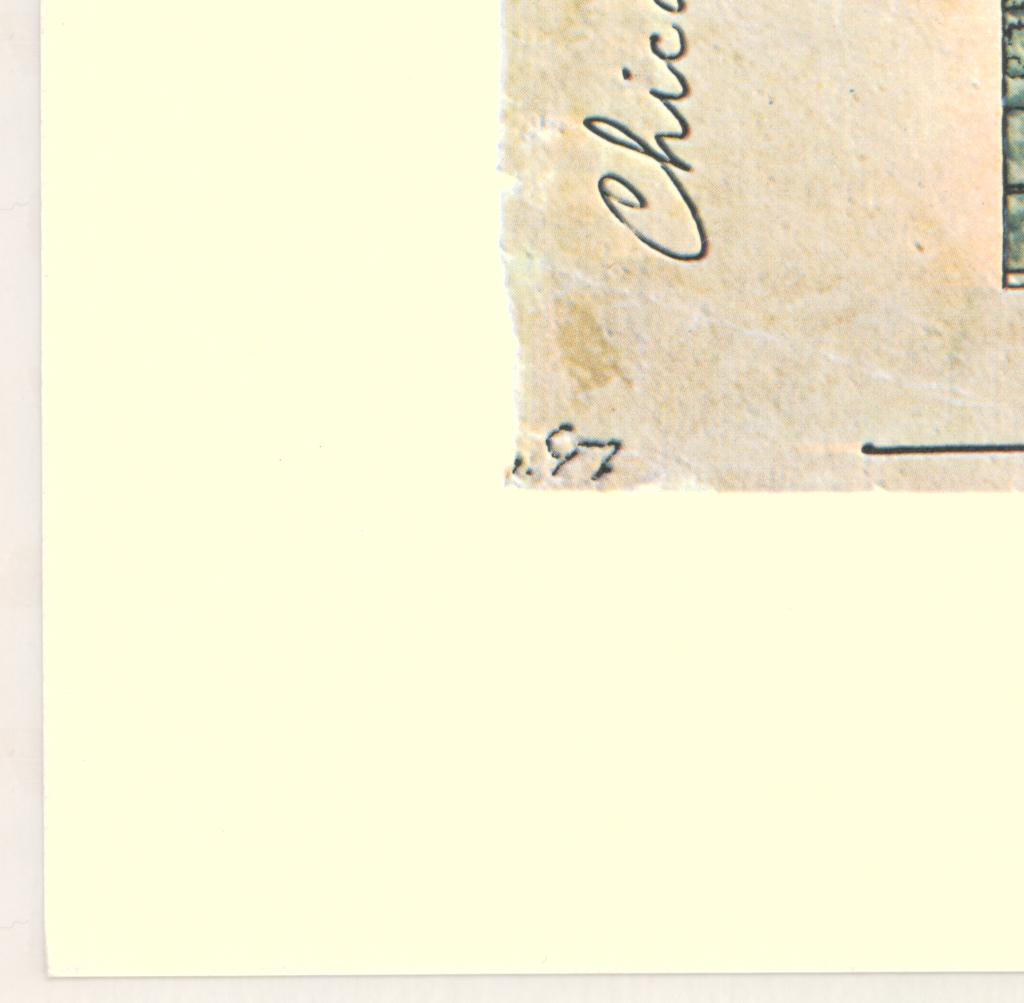 Chic
97